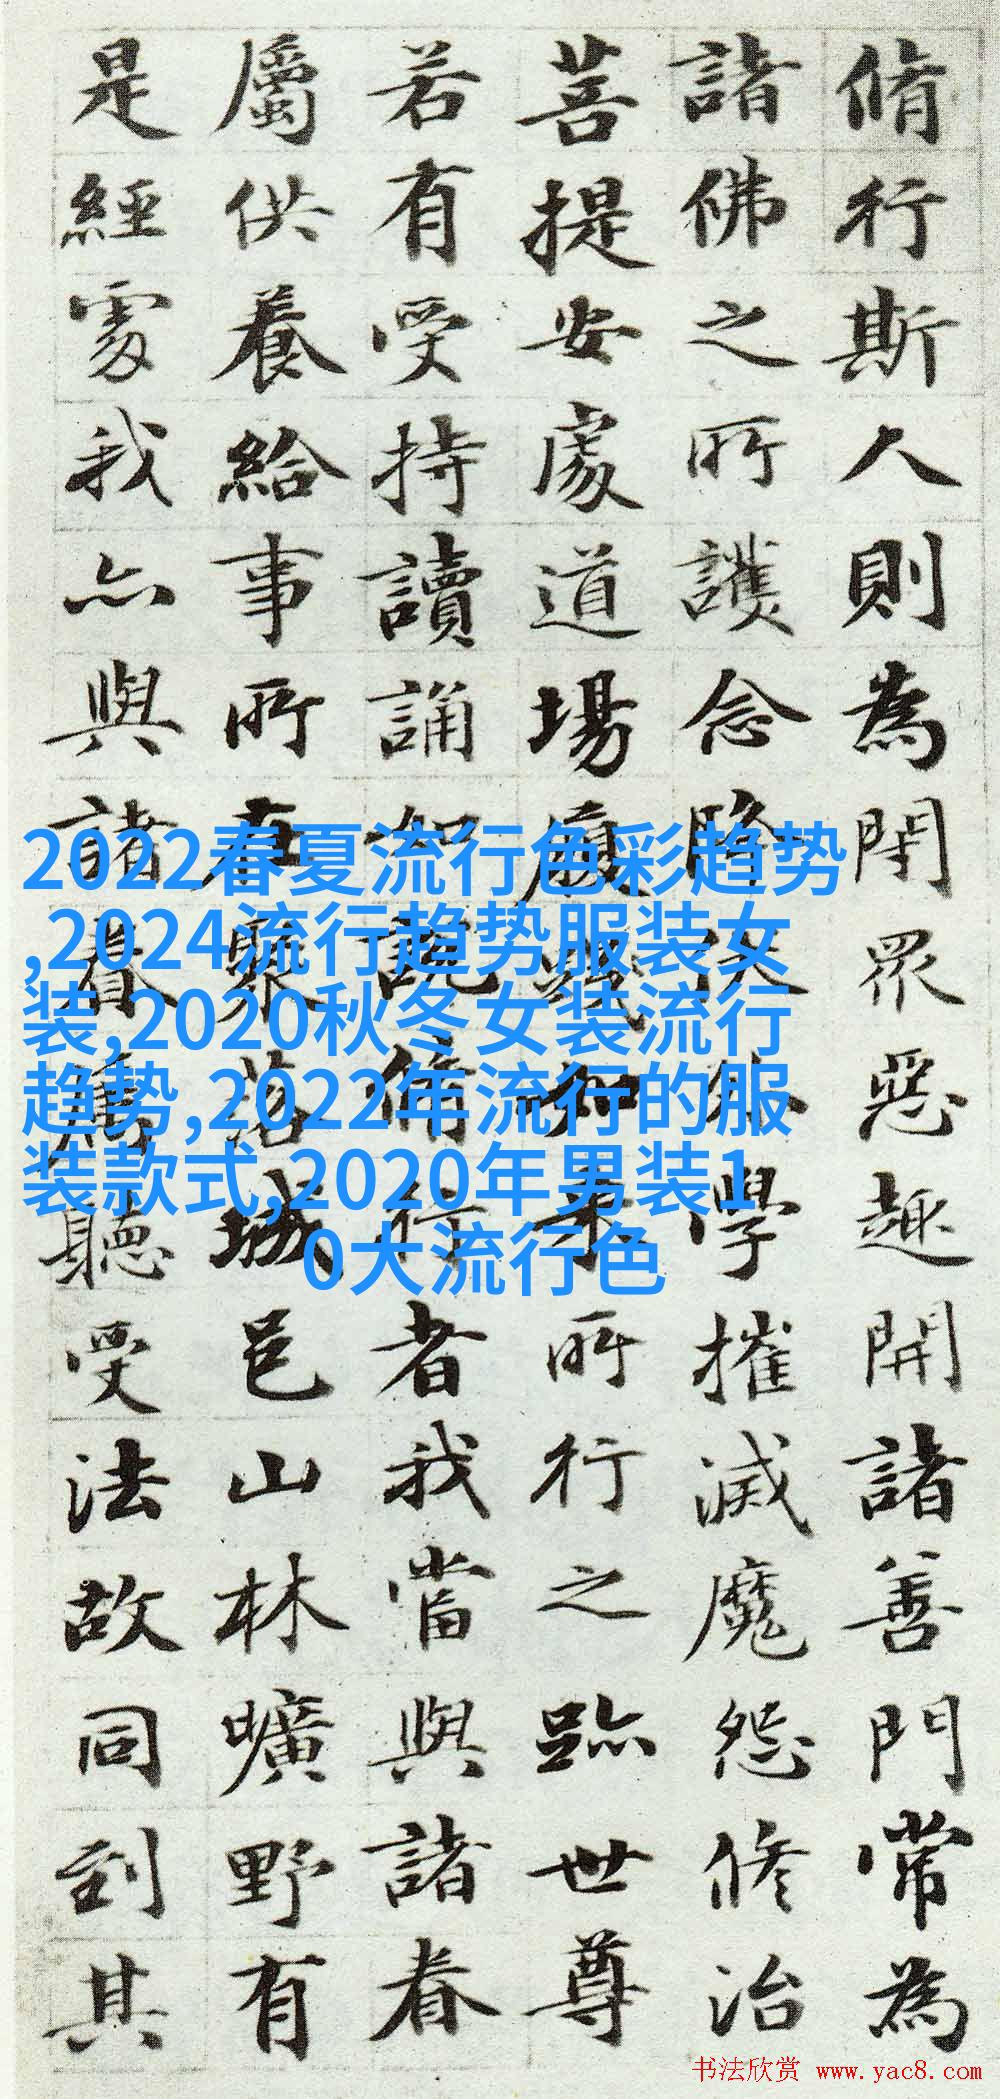 脩行斯人則為閇眾惡趣開諸善門常為
諸佛之所護念降伏外學摧滅魔怨修治
菩提安處道場履踐如來所行之跡世尊
若有受持讀誦如說脩行者我當與諸眷
屬供養給事所在聚落城邑山林曠野有
是經處我亦與諸眷屬聽受法故同到其
2022春夏流行色彩趋势
,2024流行趋势服装女
装,2020秋冬女装流行
趋势,2022年流行的服
装款式,2020年男装1
0大流行色
书法欣赏 www.yac8.com